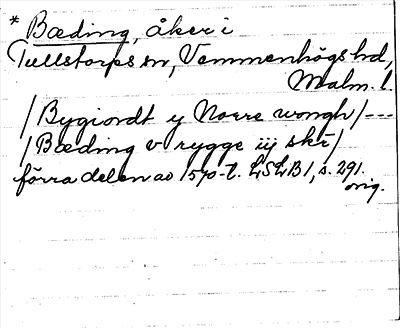 * Bæding, åker i
Tullstorps sn, Vemmenhögs hd,
Malm. l.
/Bygiordt y Norre wongh/---
/Bæding v rygge iij skr/
förra delen av 1570-t. LSLB1, s. 291.
orig.